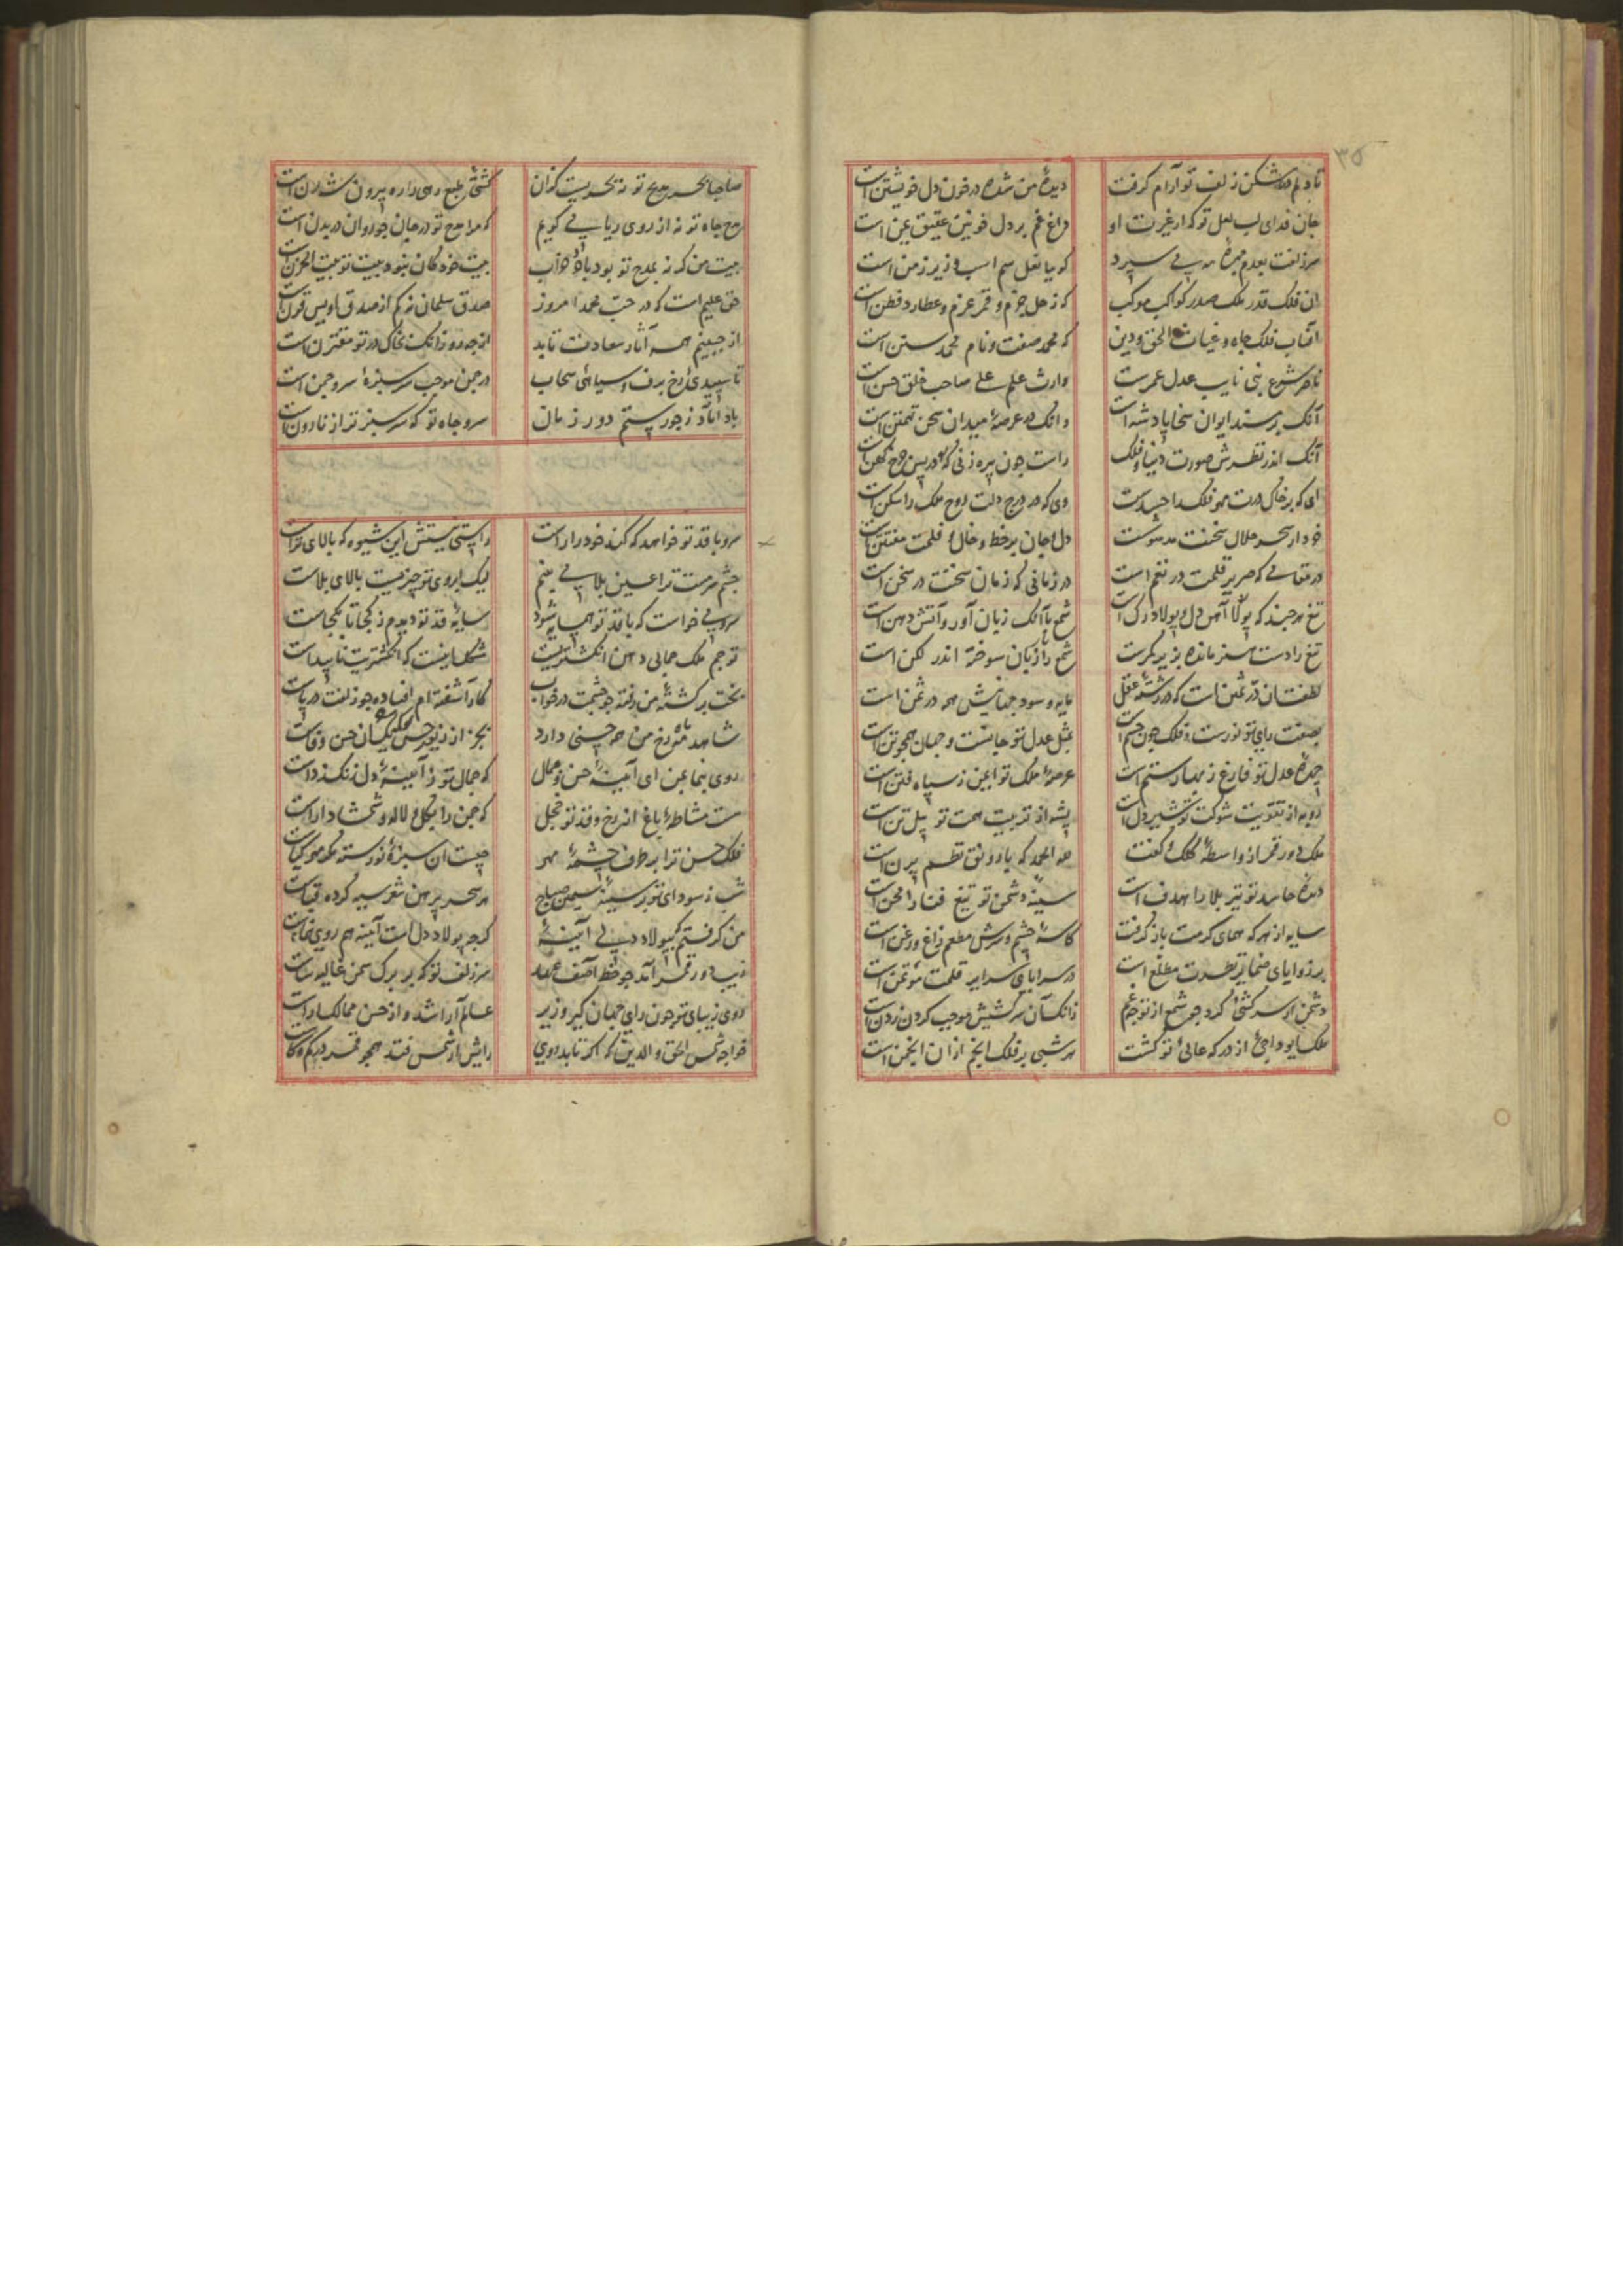 ۳۵
تا دلم در شکن زلف تو آرام گرفت دیدهٔ من شده در خون دل خویشتن است
جان فدای لب لعل تو که از غیرت او داغ غم بر دل خونین عقیق یمن است
سر زلفت بعدم مهرهٔ مه می سپرد کوییا نعل سم اسب وزیر زمن است
ان فلک قدر ملک صدر کواکب موکب که زحل حزم و قمر عزم و عطارد فطن است
افتاب فلک جاه و غیاث الحق و دین که محمد صفت و نام محمد سنن است
ناصر شرع نبی نایب عدل عمرست وارث علم علی صاحب خلق حسن است
آنک بر مسند ایوان سخا پادشه است وانک در عرصهٔ میدان سخن تهمتن است
آنک اندر نظرش صورت دنیا و فلک راست چون پیره زنی کو در پس چرخ کهن است
ای که بر خاک درت مهر فلک را حسدست وی که در درج دلت روح ملک را سکن است
خرد از سحر حلال سخنت مدهوشست دل و جان بر خط و خال و قلمت مفتتن است
در مقامی که صریر قلمت در نغم است در زمانی که زبان سخنت در سخن است
تیغ هرچند که پولاد آهن دل و پولاد رک است شمع با آنک زبان آور و آتش دهن است
تیغ را دست هنر مانده بزیر کمرست شمع را زبان سوخته اندر لکن است
لطفت ان در ثمین است که در رشتهٔ عقل مایه و سود جهانیش همه در ثمن است
بصفت رای تو نورست و فلک چون جسم است بمثل عدل تو جانست و جهان همچو تن است
چهرهٔ عدل تو فارغ ز بهار ستم است عرصهٔ ملک تو ایمن ز سپاه فتن است
روبه از تقویت شوکت تو شیر دل است پشه از تربیت همت تو پیل تن است
ملک دور قمر از واسطهٔ کلک کفت لله الحمد که با رونق نظم پرن است
دیدهٔ حاسد تو تیر بلا را هدف است سینهٔ دشمن تو تیغ فنا را محن است
سایه از هر که همای کرمت باز گرفت کاسهٔ چشم و سرش مطعم زاغ و زغن است
بر زوایای ضمایر نظرت مطلع است در سراپای سرایر قلمت مؤتمن است
دشمن ار سرکشیی کرد چو شمع از تو چه غم زانک آن سرکشیش موجب گردن زدن است
هر شبی بر فلک انجم از ان انجمن است
صاحبا بحر مدیح تو نه بحریست کزان کشتی طبع رهی را ره بیرون شدن است
مدح جاه تو نه از روی ریا می گویم که مرا مدح تو در جان چو روان در بدن است
بیت من که نه بمدح تو بود باد خراب بیت خود کان نبود بیت تو بیت الحزن است
حق علیم است که در حب محمد امروز صدق سلمان نه کم از صدق اویس قرن است
از جبینم همه آثار سعادت تابد از چه رو زانک بخاک در تو مقترن است
تا سپیدی رخ برف و سیاهی سحاب در چمن موجب سرسبزی سرو چمن است
باد آباد ز جور ستم دور زمان سرو جاه تو که سرسبزتر از نارون است
سرو با قد تو خواهد که کند خود را راست راستی نیستش این شیوه که بالای تراست
چشم سرمست ترا عین بلا می بینم لیک ابروی تو چیزیست که بالای بلاست
سرو می خواست که با قد تو همسایه شود سایهٔ قد تو دیدم ز کجا تا بکجاست
تو جم ملک جمالی و دهن انگشتریت مشکل اینست که انگشتریت ناپیداست
بخت برگشتهٔ من رفته چو چشمت در خواب کار آشفته ام افتاده چو زلفت در پاست
شاهد مه رخ من همه حسنی دارد بجز از زیور
روی بنما بمن ای آینهٔ حسن و جمال که جمال تو ز آیینهٔ دل زنگ زداست
هست مشاطهٔ باغ از رخ و قد تو خجل که چمن را بگل و لاله و شمشاد آراست
فلک حسن ترا بر طرف چشمهٔ مهر چیست ان سبزهٔ نو رسته
شب ز سودای تو بر سینهٔ سیمین صباح هر سحر پیرهن شعر سیه کرده قباست
من گرفتم که پولاد دلی آیینهٔ گرچه پولاد دل است آینه هم روی نماست
زیب دور قمر آمد چو خط آصف عهد سر زلف تو که بر برگ سمن غالیه ساست
روی زیبای تو چون رای جهان گیر وزیر عالم آرا شد و از حسن ممالک آراست
خواجه شمس الحق و الدین که اگر تابد روی رایش از شمس فتد همچو قمر در کم و کاست